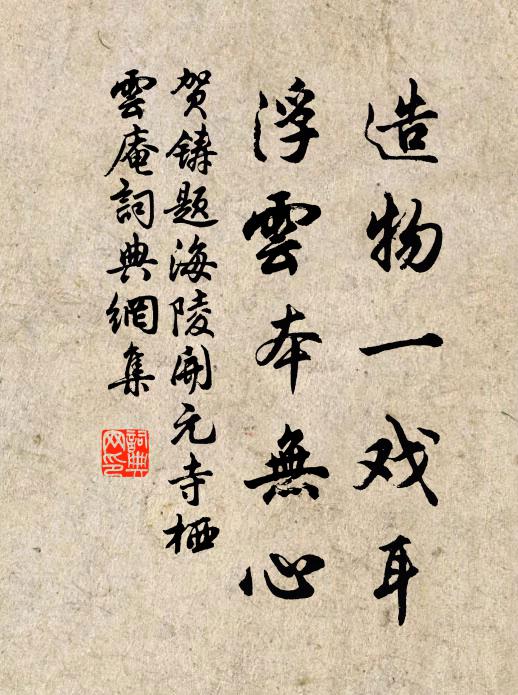 造物一戏耳
浮雲本無心
贺铸题海陵開元寺栖
雲庵詞典網集
詞典網印